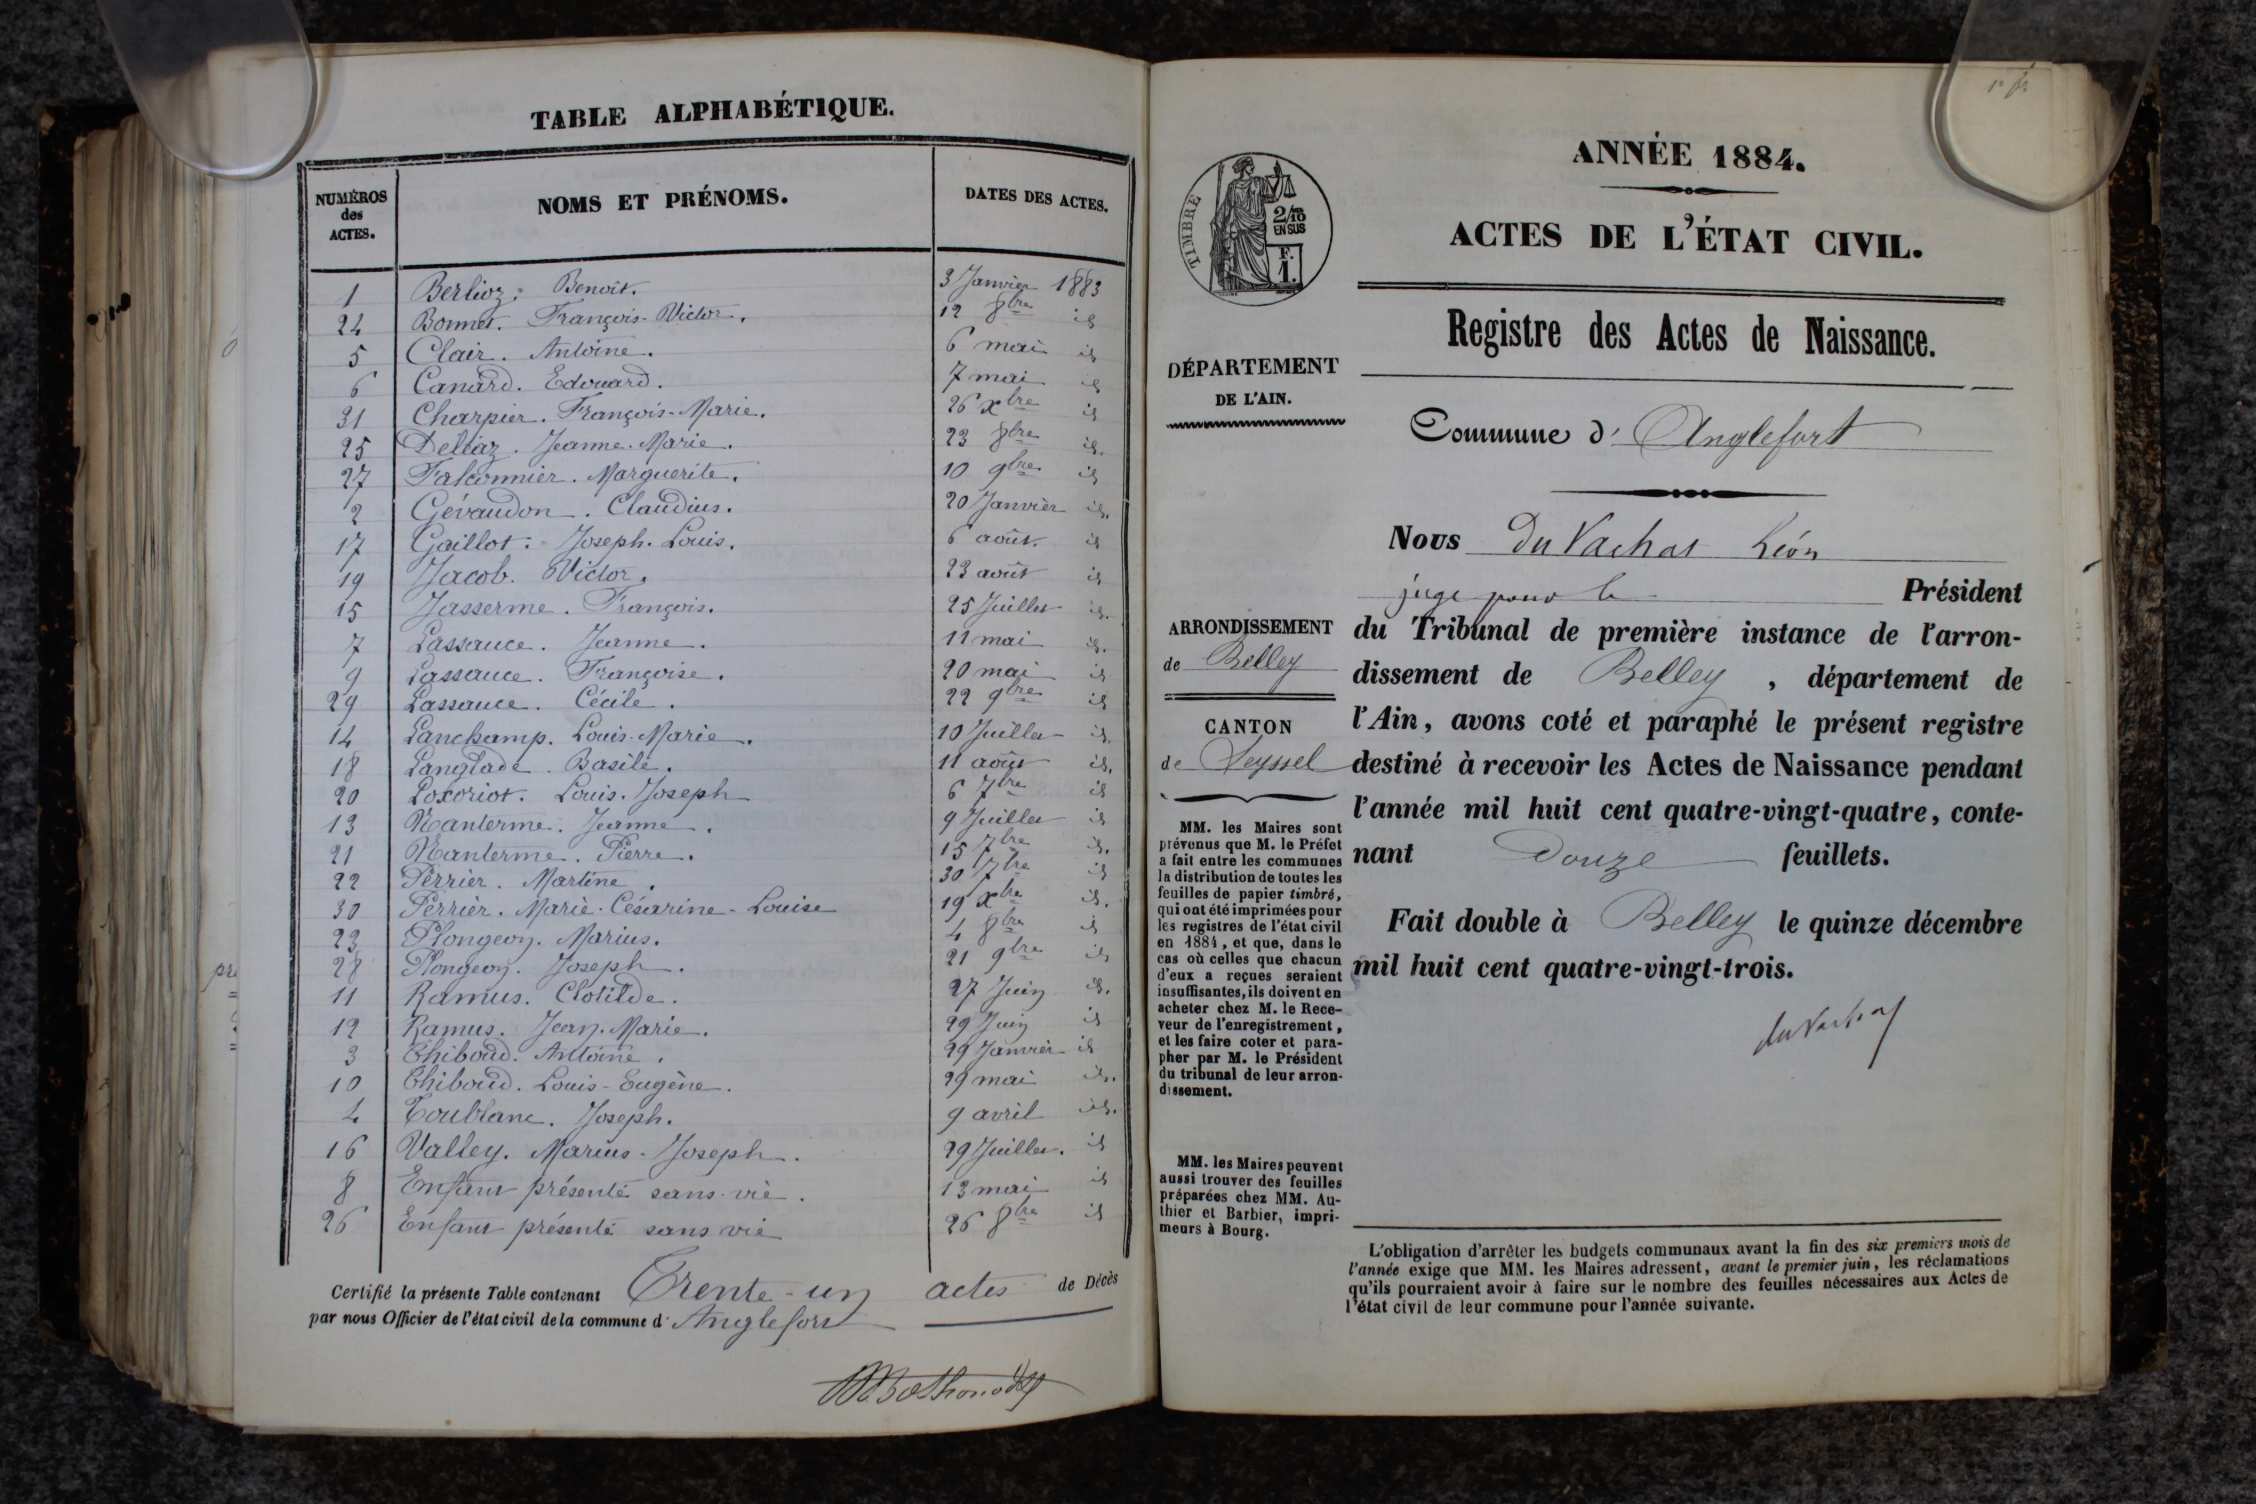 TABLE ALPHABÉTIQUE.
NUMÉROS
des
ACTES.
NOMS ET PRÉNOMS.
DATES DES ACTES.
1 Berlioz. Benoît. 3 Janvier 1883
24 Bonnet. François-Victor. 12 8bre id
5 Clair. Antoine. 6 mai id
6 Canard. Edouard. 7 mai id
31 Charpier. François-Marie. 26 Xbre id
25 Deléaz. Jeanne-Marie. 23 8bre id.
27 Falconnier. Marguerite. 10 9bre id
2 Gévaudon. Claudius. 20 Janvier id.
17 Gaillot. Joseph. Louis. 6 août. id
19 Jacob. Victor. 23 août id
15 Jasserme. François. 25 Juillet id.
7 Lassauce. Jeanne. 11 mai id.
9 Lassauce. Françoise. 20 mai id
29 Lassauce. Cécile. 22 9bre id
14 Lanchamp. Louis-Marie. 10 Juillet id.
18 Langlade. Basile. 11 août id.
20 Loxoriot. Louis. Joseph 6 7bre id
13 Nanterme. Jeanne. 9 Juillet id
21 Nanterme. Pierre. 15 7bre id.
22 Perrier. Martine. 30 7bre id
30 Perrier. Marie-Césarine-Louise 19 Xbre id.
23 Plongeon. Marius. 4 8bre id
28 Plongeon. Joseph. 21 9bre id
11 Ramus. Clotilde. 27 Juin id.
12 Ramus. Jean. Marie. 29 Juin id
3 Thiboud. Antoine. 29 Janvier id
10 Thiboud. Louis-Eugène. 29 mai id.
4 Toublanc. Joseph. 9 avril id.
16 Valley. Marius-Joseph. 29 Juillet. id
8 Enfant présenté sans vie. 13 mai id
26 Enfant présenté sans vie 26 8bre id
Certifié la présente Table contenant Trente-un actes de Décès
par nous Officier de l'état civil de la commune d'Anglefort
TIMBRE
2/10
EN SUS
F.
1.
DÉPARTEMENT
DE L'AIN.
ARRONDISSEMENT
de Belley
CANTON
de Seyssel
MM. les Maires sont
prévenus que M. le Préfet
a fait entre les communes
la distribution de toutes les
feuilles de papier timbré,
qui ont été imprimées pour
les registres de l'état civil
en 1884, et que, dans le
cas où celles que chacun
d'eux a reçues seraient
insuffisantes, ils doivent en
acheter chez M. le Rece-
veur de l'enregistrement,
et les faire coter et para-
pher par M. le Président
du tribunal de leur arron-
dissement.
MM. les Maires peuvent
aussi trouver des feuilles
préparées chez MM. Au-
thier et Barbier, impri-
meurs à Bourg.
ANNÉE 1884.
ACTES DE L'ÉTAT CIVIL.
Registre des Actes de Naissance.
Commune d'Anglefort
Nous Du Vachat Léon
juge pour le Président
du Tribunal de première instance de l'arron-
dissement de Belley, département de
l'Ain, avons coté et paraphé le présent registre
destiné à recevoir les Actes de Naissance pendant
l'année mil huit cent quatre-vingt-quatre, conte-
nant Douze feuillets.
Fait double à Belley le quinze décembre
mil huit cent quatre-vingt-trois.
du Vachat
L'obligation d'arrêter les budgets communaux avant la fin des six premiers mois de
l'année exige que MM. les Maires adressent, avant le premier juin, les réclamations
qu'ils pourraient avoir à faire sur le nombre des feuilles nécessaires aux Actes de
l'état civil de leur commune pour l'année suivante.